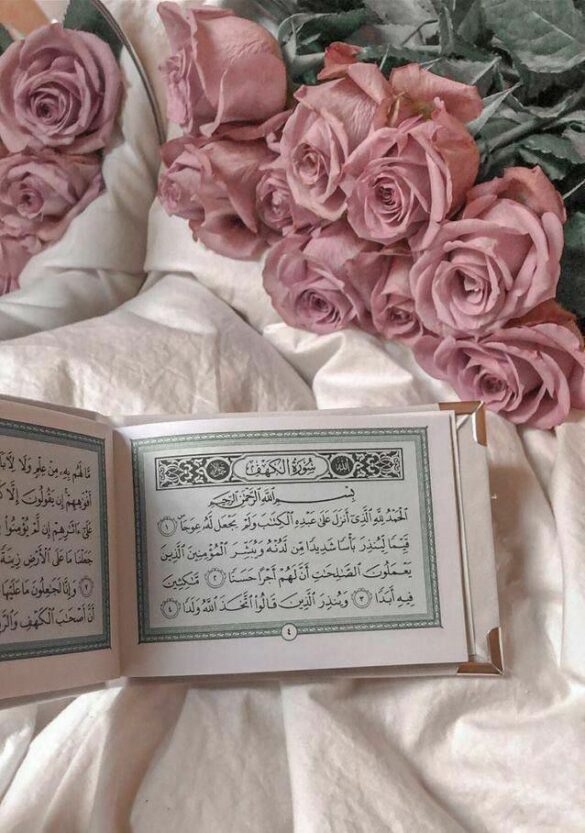 الله سُورَةُ الكَهْفِ
بِسْمِ ٱللَّهِ ٱلرَّحْمَٰنِ ٱلرَّحِيمِ
ٱلْحَمْدُ لِلَّهِ ٱلَّذِىٓ أَنزَلَ عَلَىٰ عَبْدِهِ ٱلْكِتَٰبَ وَلَمْ يَجْعَل لَّهُۥ عِوَجَاۜ ١
قَيِّمًا لِّيُنذِرَ بَأْسًا شَدِيدًا مِّن لَّدُنْهُ وَيُبَشِّرَ ٱلْمُؤْمِنِينَ ٱلَّذِينَ
يَعْمَلُونَ ٱلصَّٰلِحَٰتِ أَنَّ لَهُمْ أَجْرًا حَسَنًا ٢ مَّٰكِثِينَ
فِيهِ أَبَدًا ٣ وَيُنذِرَ ٱلَّذِينَ قَالُوا۟ ٱتَّخَذَ ٱللَّهُ وَلَدًا ٤
٤
مَّا لَهُم بِهِۦ مِنْ عِلْمٍ وَلَا
أَفْوَٰهِهِمْ إِن يَقُولُونَ إِلَّا
عَلَىٰٓ ءَاثَٰرِهِمْ إِن لَّمْ يُؤْمِنُوا۟
جَعَلْنَا مَا عَلَى ٱلْأَرْضِ زِينَةً
٧ وَإِنَّا لَجَٰعِلُونَ مَا عَلَيْهَا
أَنَّ أَصْحَٰبَ ٱلْكَهْفِ